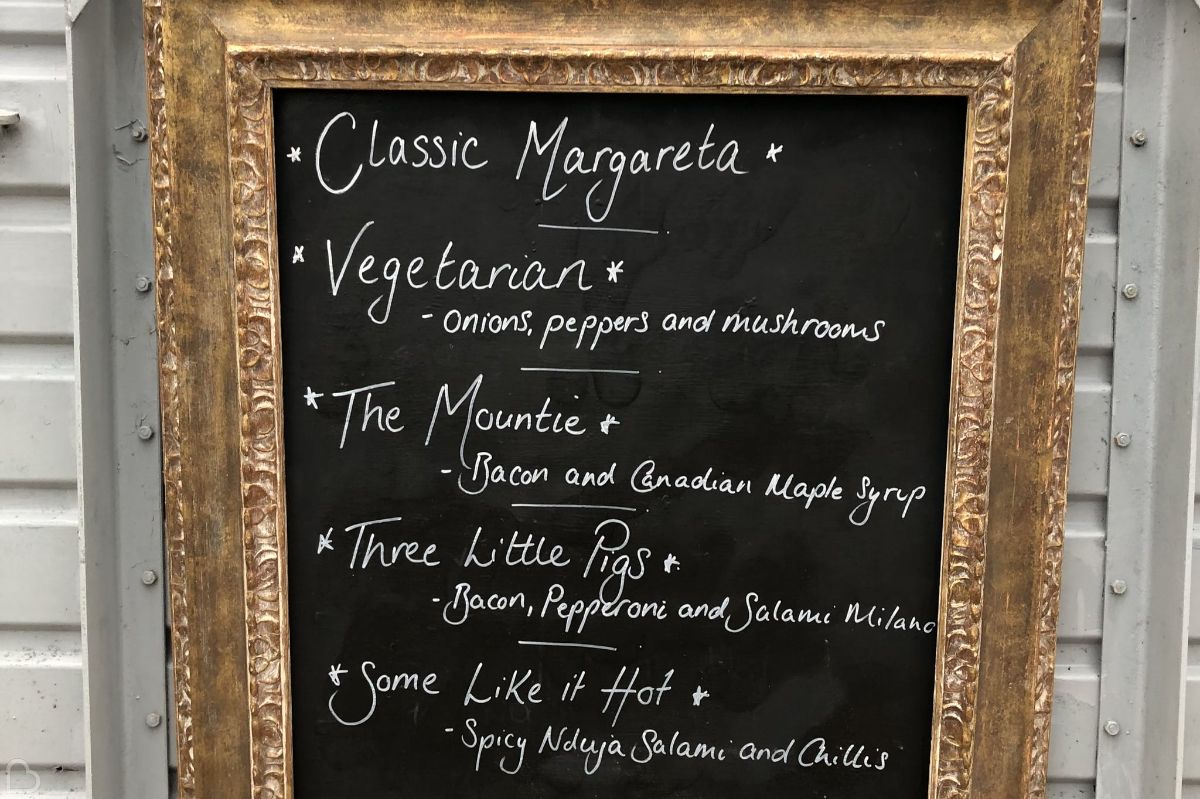 * Classic Margareta *
* Vegetarian *
- Onions, peppers and mushrooms
* The Mountie *
- Bacon and Canadian Maple Syrup
* Three Little Pigs *
- Bacon, Pepperoni and Salami Milano
* Some Like it Hot *
- Spicy Nduja Salami and Chillis